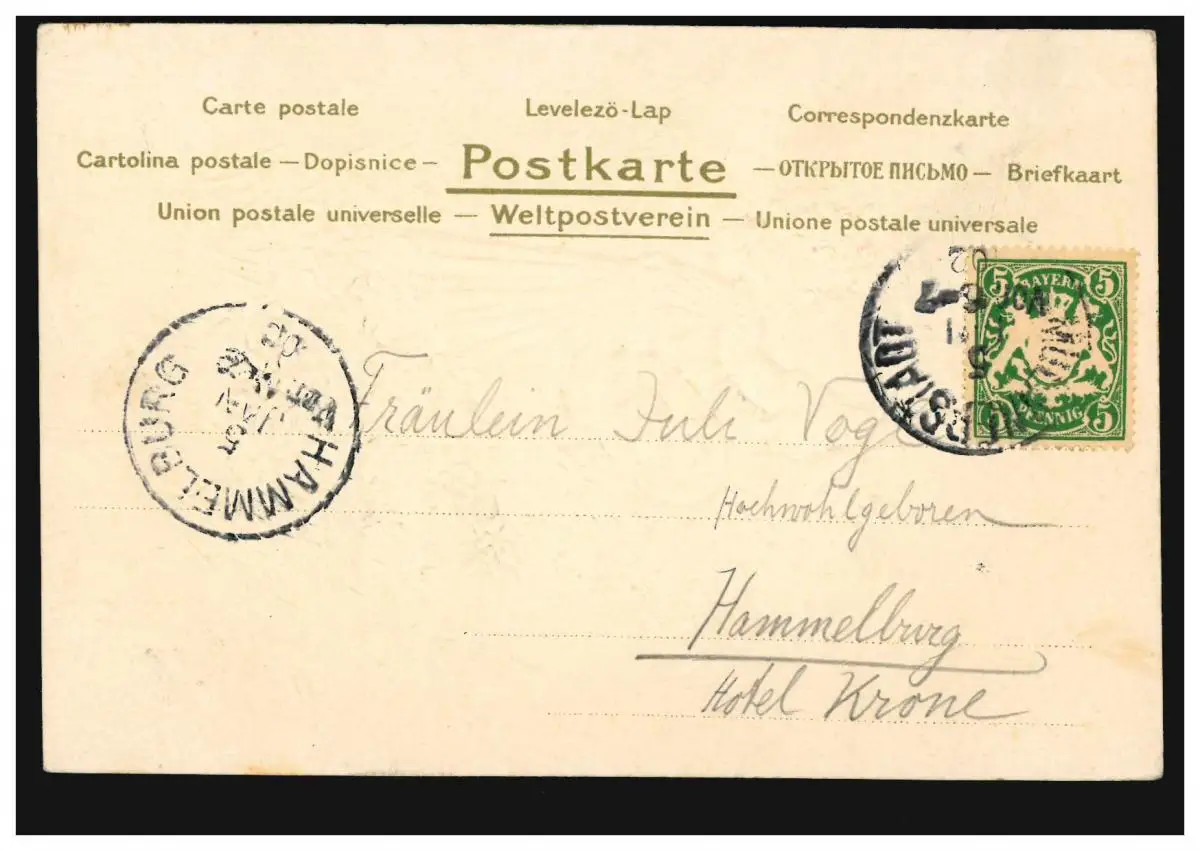 Carte postale Levelező-Lap Correspondenzkarte
Cartolina postale — Dopisnice — Postkarte — ОТКРЫТОЕ ПИСЬМО — Briefkaart
Union postale universelle — Weltpostverein — Unione postale universale
5 BAYERN 5
5 PFENNIG 5
HAMMELBURG
5
JAN
02
Fräulein Juli Vogl
Hochwohlgeboren
Hammelburg
Hotel Krone